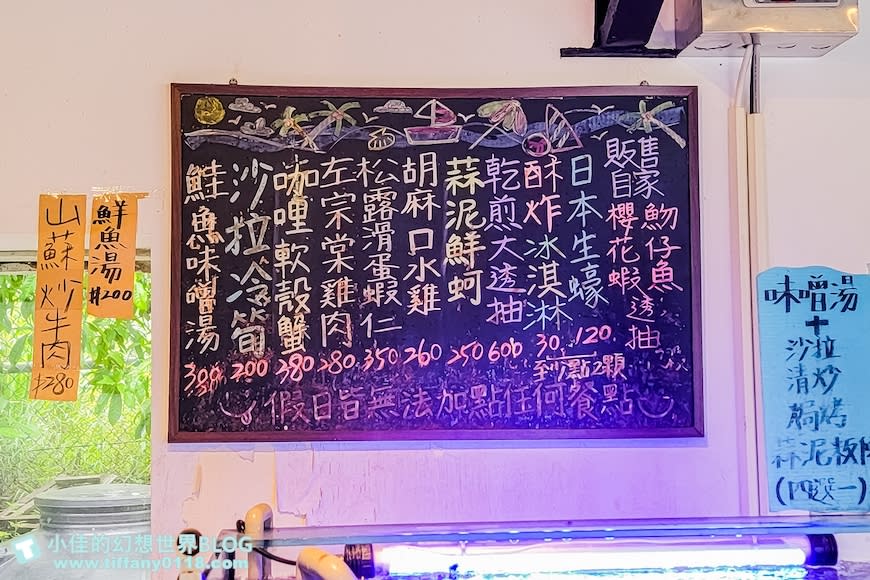 山蘇炒牛肉
#280
鮮魚湯
#200
販售自家魩仔魚
櫻花蝦 透抽
日本生蠔 120
酥炸冰淇淋 30
至少點2顆
乾煎大透抽 600
蒜泥鮮蚵 250
胡麻口水雞 260
松露滑蛋蝦仁 350
左宗棠雞肉 280
咖哩軟殼蟹 380
沙拉冷筍 200
鮭魚味噌湯 300
假日皆無法加點任何餐點
味噌湯
+
沙拉
清炒
焗烤
蒜泥
(四選一)
小佳的幻想世界BLOG
www.tiffany0118.com